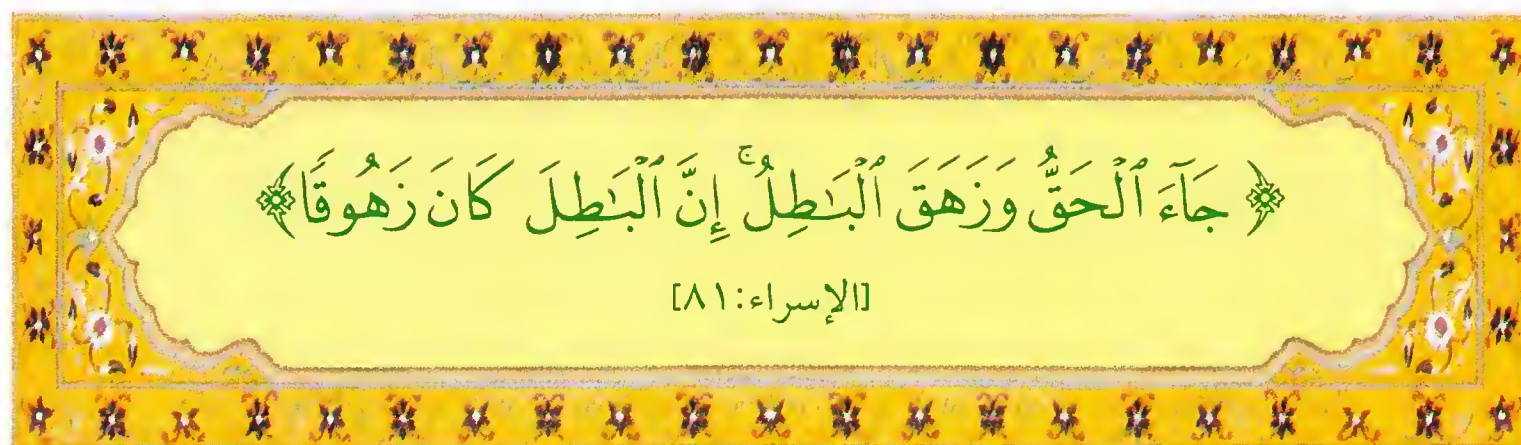 ﴿ جَآءَ ٱلۡحَقُّ وَزَهَقَ ٱلۡبَٰطِلُۚ إِنَّ ٱلۡبَٰطِلَ كَانَ زَهُوقٗا﴾
[الإسراء:٨١]